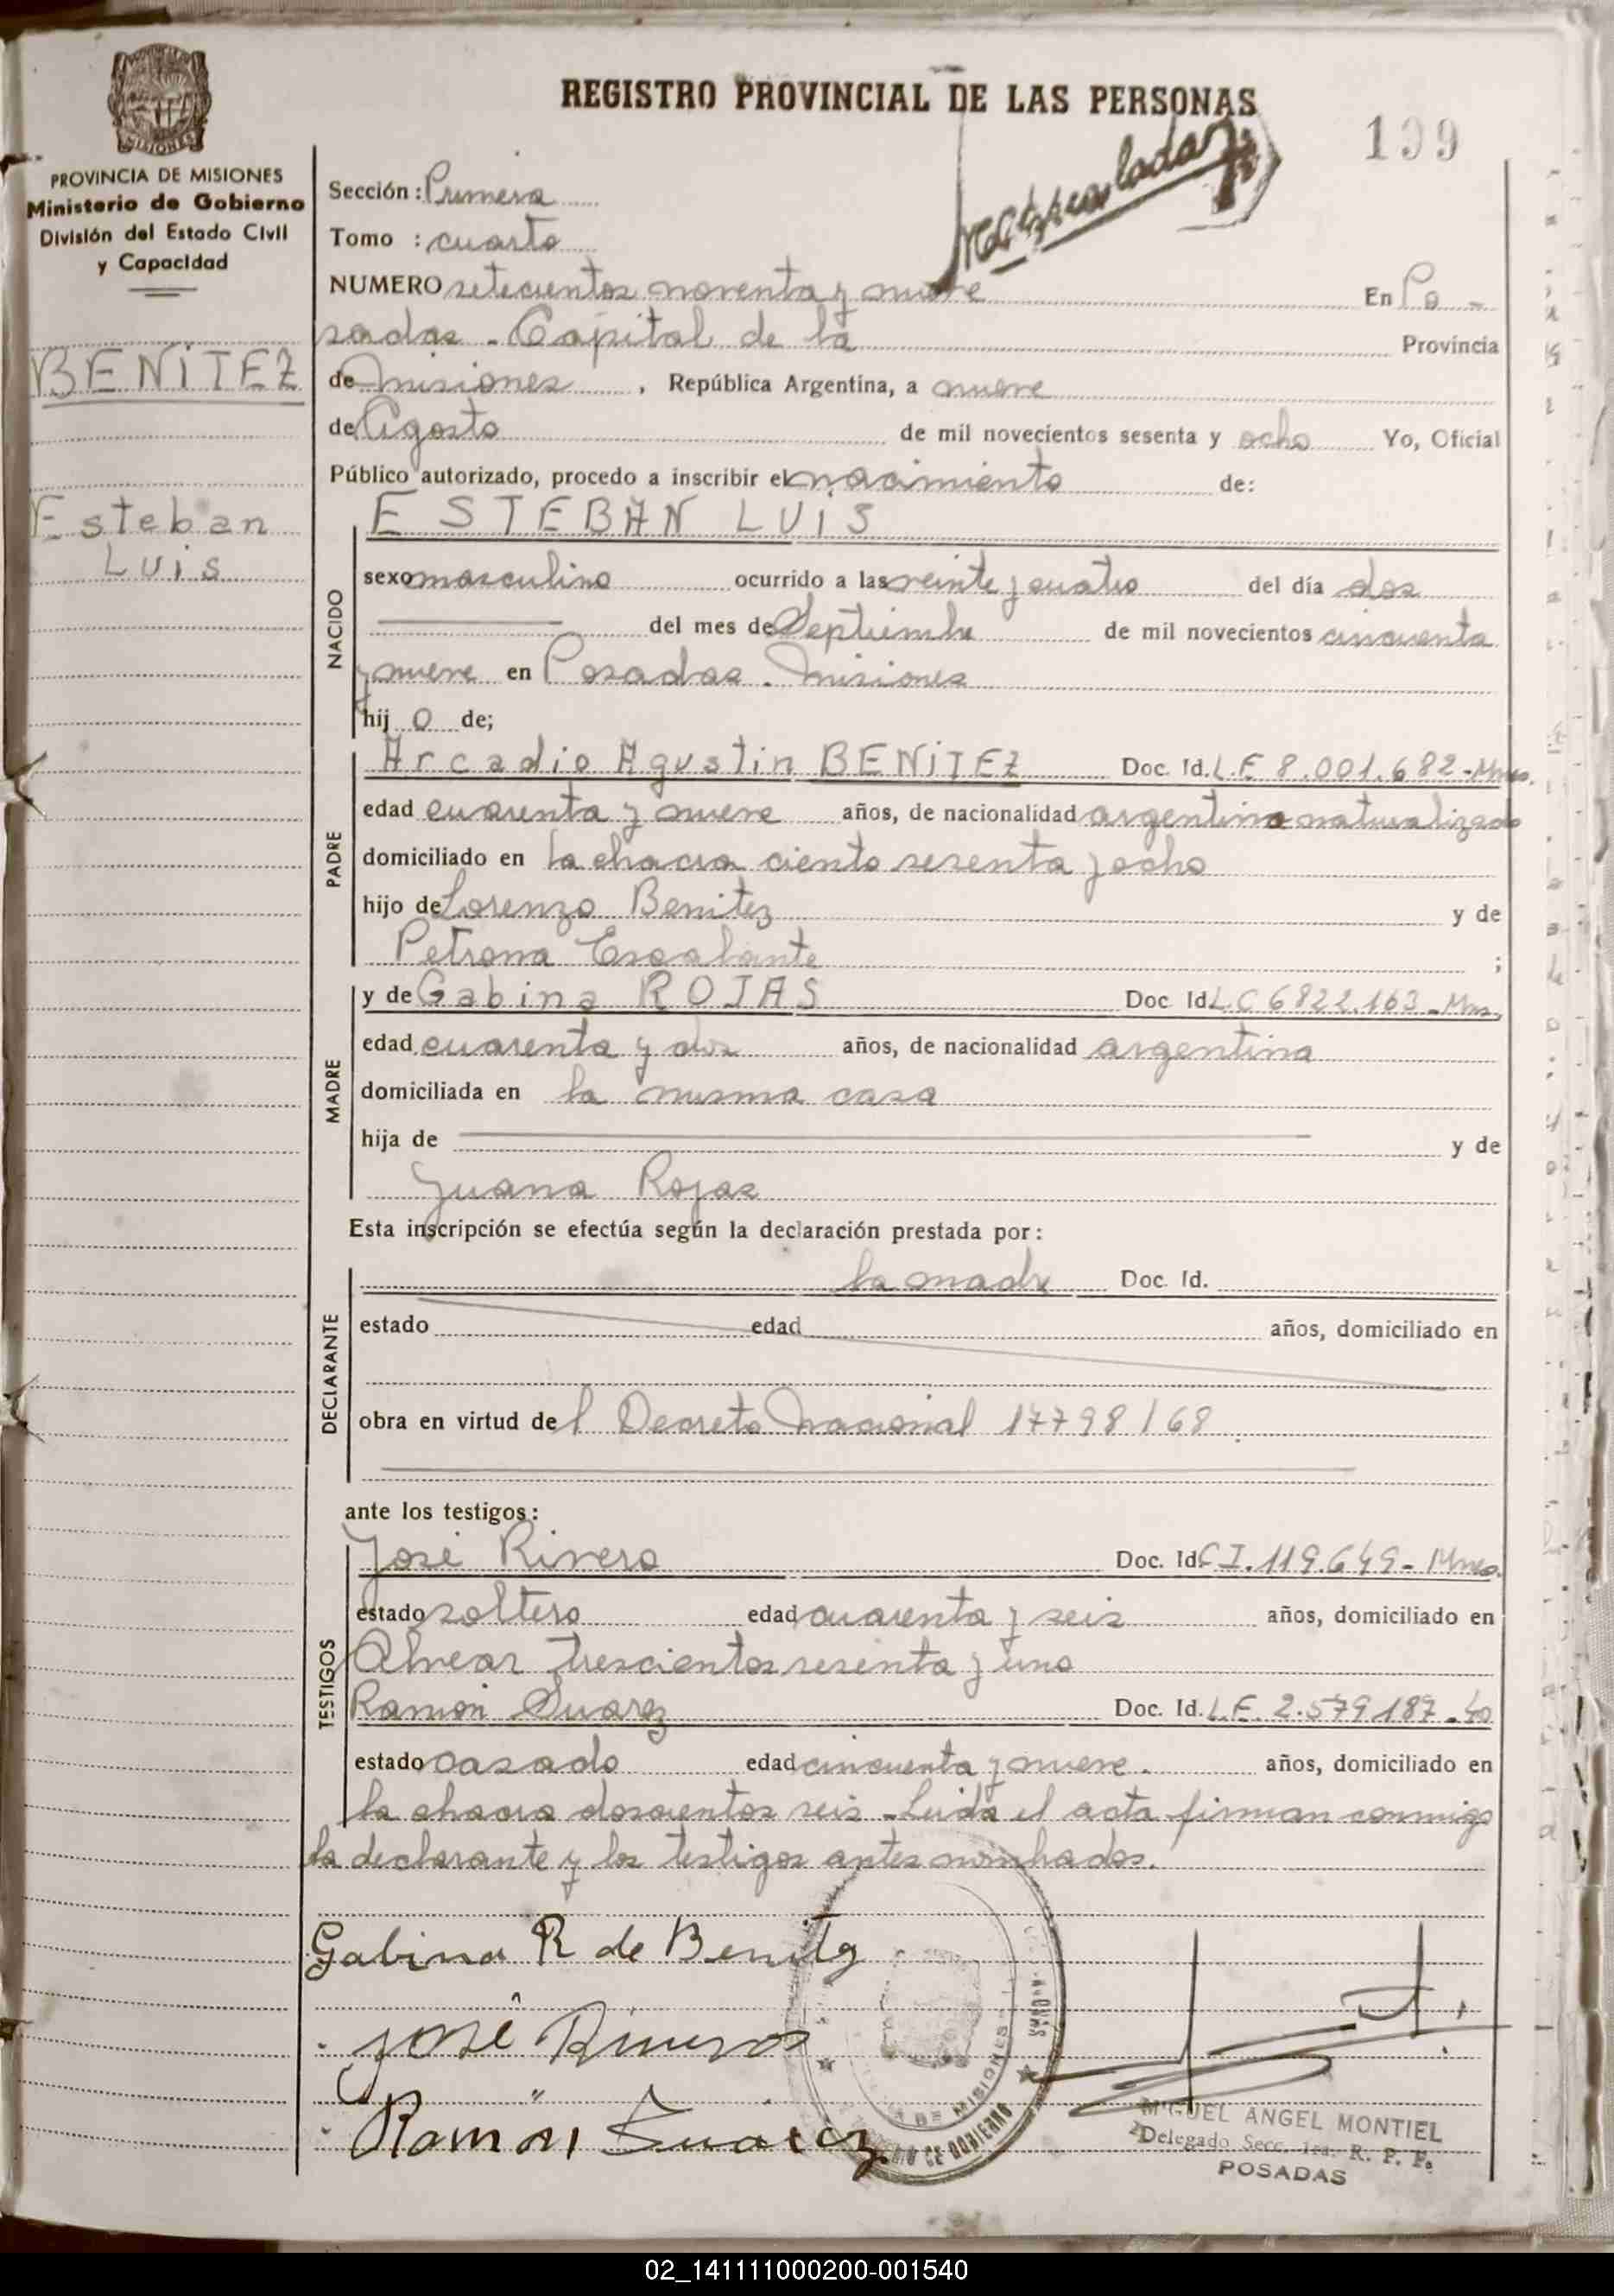 REGISTRO PROVINCIAL DE LAS PERSONAS
199
MISIONES
PROVINCIA DE MISIONES
Ministerio de Gobierno
División del Estado Civil
y Capacidad
BENITEZ
Esteban
Luis
Sección: Primera
Tomo : cuarto
NUMERO setecientos noventa y nueve En Po -
sadas - Capital de la Provincia
de Misiones, República Argentina, a nueve
de Agosto de mil novecientos sesenta y ocho Yo, Oficial
Público autorizado, procedo a inscribir el nacimiento de:
ESTEBAN LUIS
NACIDO
sexo masculino ocurrido a las veinte y cuatro del día dos
del mes de Septiembre de mil novecientos cincuenta
y nueve en Posadas - Misiones
hij o de;
PADRE
Arcadio Agustin BENITEZ Doc. Id. L.E 8.001.682-Mnes.
edad cuarenta y nueve años, de nacionalidad argentino naturalizado
domiciliado en la chacra ciento sesenta y ocho
hijo de Lorenzo Benitez y de
Petrona Escalante ;
MADRE
y de Gabina ROJAS Doc. Id L.C 6822.163-Mnes,
edad cuarenta y dos años, de nacionalidad argentina
domiciliada en la misma casa
hija de y de
Juana Rojas
Esta inscripción se efectúa según la declaración prestada por:
DECLARANTE
la madre Doc. Id.
estado edad años, domiciliado en
obra en virtud del Decreto Nacional 17798/68
ante los testigos:
TESTIGOS
José Rivero Doc. Id C I. 119.649- Mnes.
estado soltero edad cuarenta y seis años, domiciliado en
Alvear trescientos sesenta y uno
Ramon Suarez Doc. Id. L.E. 2.579.187-
estado casado edad cincuenta y nueve. años, domiciliado en
la chacra doscientos seis - Leida el acta firman conmigo
la declarante y los testigos antes nombrados.
Gabina R de Benitez
José Riveros
Ramón Suarez
DE MISIONES
DE GOBIERNO
MIGUEL ANGEL MONTIEL
Delegado Secc. 1ra. R. P. P.
POSADAS
02_141111000200-001540